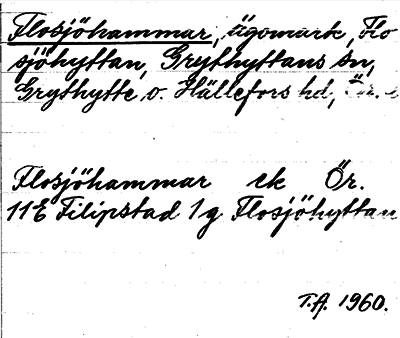 Flosjöhammar, ägomark, Flo
sjöhyttan, Grythyttans sn,
Grythytte o. Hällefors hd, Ör. l
Flosjöhammar ek Ör.
11E Filipstad 1g Flosjöhyttan
T.A. 1960.